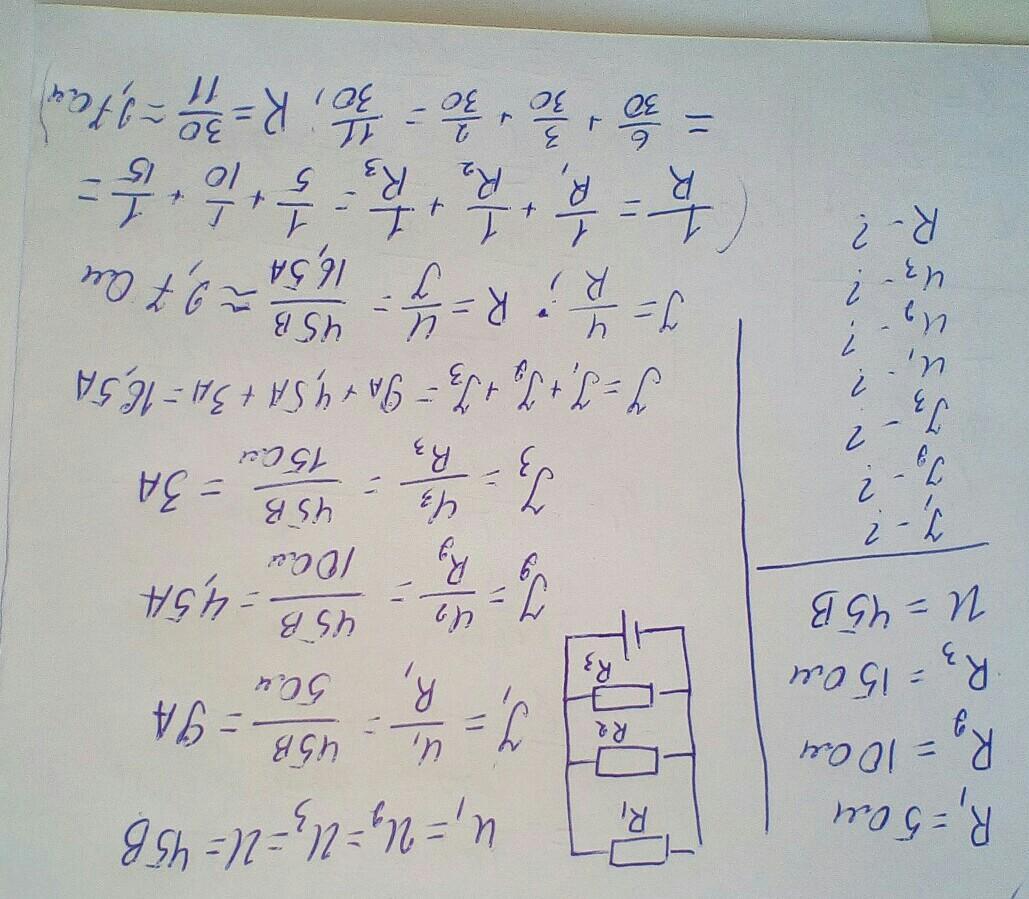 R₁ = 5 Ом
R₂ = 10 Ом
R₃ = 15 Ом
U = 45 В
I₁ - ?
I₂ - ?
I₃ - ?
U₁ - ?
U₂ - ?
U₃ - ?
R - ?
R₁
R₂
R₃
U₁ = U₂ = U₃ = U = 45 В
I₁ = U₁/R₁ = 45 В/5 Ом = 9 А
I₂ = U₂/R₂ = 45 В/10 Ом = 4,5 А
I₃ = U₃/R₃ = 45 В/15 Ом = 3 А
I = I₁ + I₂ + I₃ = 9 А + 4,5 А + 3 А = 16,5 А
I = U/R; R = U/I = 45 В/16,5 А ≈ 2,7 Ом
(1/R = 1/R₁ + 1/R₂ + 1/R₃ = 1/5 + 1/10 + 1/15 =
= 6/30 + 3/30 + 2/30 = 11/30; R = 30/11 ≈ 2,7 Ом)